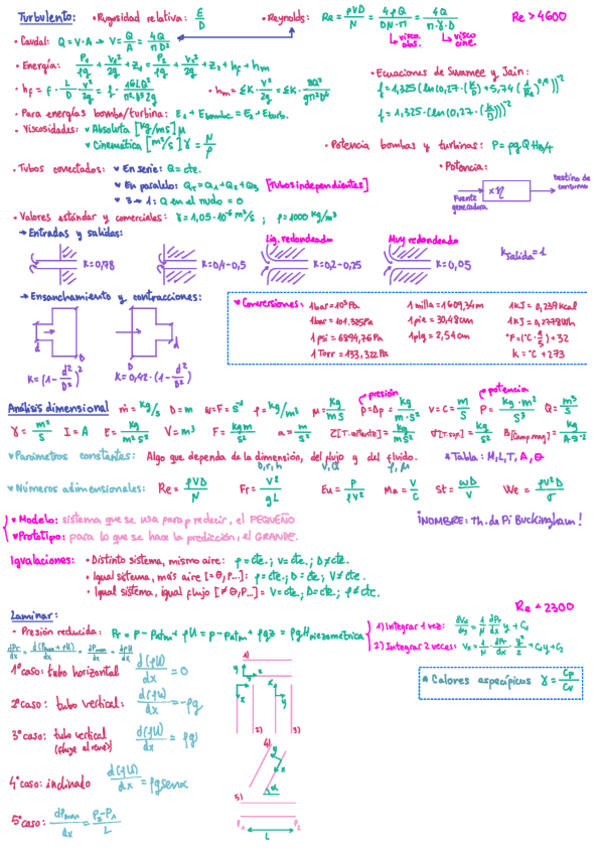 Turbulento: • Rugosidad relativa: ε/D • Reynolds: Re = ρVD/N = 4ρQ/DN·π = 4Q/π·γ·D Re > 4600
↳ visco abs. ↳ visco cine.
• Caudal: Q = V·A → V = Q/A = 4Q/πD²
• Energía: P₁/ρg + V₁²/2g + z₁ = P₂/ρg + V₂²/2g + z₂ + hf + hm
• Ecuaciones de Swamee y Jain:
• hf = f · L/D · V²/2g = f · 16LQ²/π²D⁵2g • hm = ΣK · V²/2g = ΣK · 8Q²/gπ²D⁴
f = 1,325 (ln(0,27·(ε/D) + 5,74 (1/Re)^0,9))⁻²
f = 1,325 · (ln(0,27·(ε/D)))⁻²
• Para energías bomba/turbina: E₁ + Ebomba = E₂ + Eturb.
• Viscosidades: ♥ Absoluta [kg/ms] μ
♥ Cinemática [m²/s] γ = N/ρ
• Potencia bombas y turbinas: P = ρgQH B/t
• Tubos conectados: ♥ En serie: Q = cte.
♥ En paralelo: QT = Q₁ + Q₂ + Q₃ [Tubos independientes]
♥ 3 → 1: Q en el nudo = 0
• Potencia:
Fuente generadora → xη → Destino de consumo
• Valores estándar y comerciales: γ = 1,05·10⁻⁶ m²/s ; ρ = 1000 kg/m³
→ Entradas y salidas:
Lig. redondeado Muy redondeado
K = 0,78 K = 0,4-0,5 K = 0,2-0,25 K = 0,05 Ksalida = 1
→ Ensanchamiento y contracciones:
d D D d
K = (1 - d²/D²)² K = 0,42·(1 - d²/D²)
♥ Conversiones: 1 bar = 10⁵ Pa 1 milla = 1609,34m 1KJ = 0,239 kcal
1 bar = 101.325 Pa 1 pie = 30,48 cm 1KJ = 0,2778Wh
1 psi = 6894,76 Pa 1 plg = 2,54 cm °F = (°C · 9/5) + 32
1 Torr = 133,322 Pa K = °C + 273
presión potencia
Análisis dimensional ṁ = kg/s D = m ω = F = s⁻¹ ρ = kg/m³ μ = kg/ms p = Δp = kg/m·s² v = C = m/s P = kg·m²/s³ Q = m³/s
γ = m²/s I = A E = kg/m²s² V = m³ F = kgm/s² a = m/s² τ[T. cortante] = kg/ms² σ[T. sup.] = kg/s² B[Camp. mag] = kg/A·s⁻²
♥ Parámetros constantes: Algo que dependa de la dimensión, del flujo y del fluido. ☆ Tabla: M, L, T, A, θ
D, r, h V, Q ρ, μ
♥ Números adimensionales: Re = ρVD/N Fr = V²/gL Eu = P/ρV² Ma = V/C St = ωD/V We = ρV²D/σ
♥ Modelo: sistema que se usa para predecir, el PEQUEÑO
♥ Prototipo: para lo que se hace la predicción, el GRANDE.
¡NOMBRE: Th. de Pi Buckingham!
Igualaciones: • Distinto sistema, mismo aire: ρ = cte.; V = cte.; D ≠ cte.
• Igual sistema, más aire [= θ, P...]: ρ = cte.; D = cte; V ≠ cte.
• Igual sistema, igual flujo [≠ θ, P...] = V = cte.; D = cte.; ρ ≠ cte.
Laminar: Re < 2300
• Presión reducida: Pr = P - Patm + ρU = P - Patm + ρgz = ρgHpiezométrica
1) Integrar 1 vez: dVx/dy = 1/N dPr/dx y + C₁
2) Integrar 2 veces: Vx = 1/N · dPr/dx · y²/2 + C₁y + C₂
dPr/dx = d(Pman + ρU)/dx = dPman/dx = dρU/dx
1º caso: tubo horizontal d(ρU)/dx = 0
2º caso: tubo vertical: d(ρU)/dx = -ρg
3º caso: tubo vertical (fluye al revés) d(ρU)/dx = ρg
4º caso: inclinado d(ρU)/dx = ρg senα
5º caso: dPman/dx = P₂ - P₁/L
1) y x
x y 2) 3)
4) y x α
5) P₁ L P₂
☆ Calores específicos γ = Cp/Cv